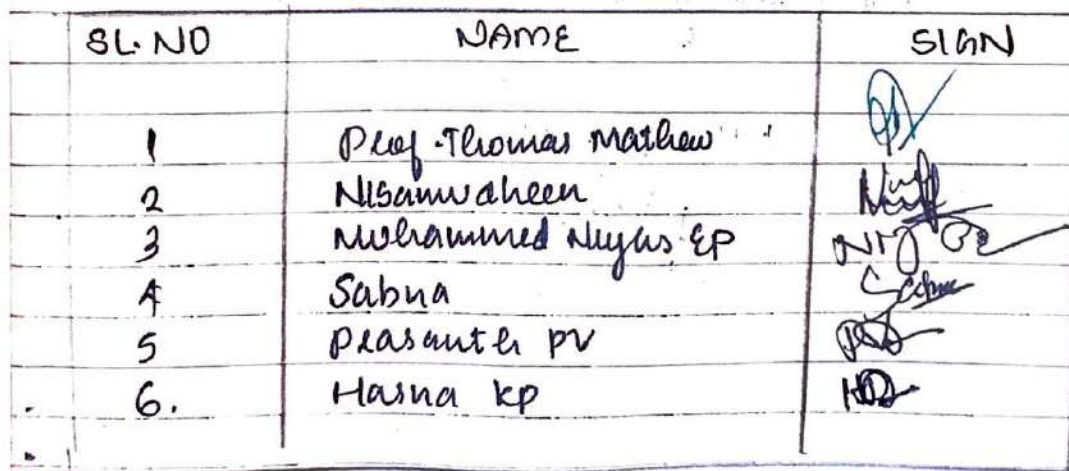 SL.NO NAME SIGN
1 Prof. Thomas Mathew
2 Nisamudheen
3 Muhammed Niyas EP
4 Sabna
5 Prasanth PV
6. Hasna KP